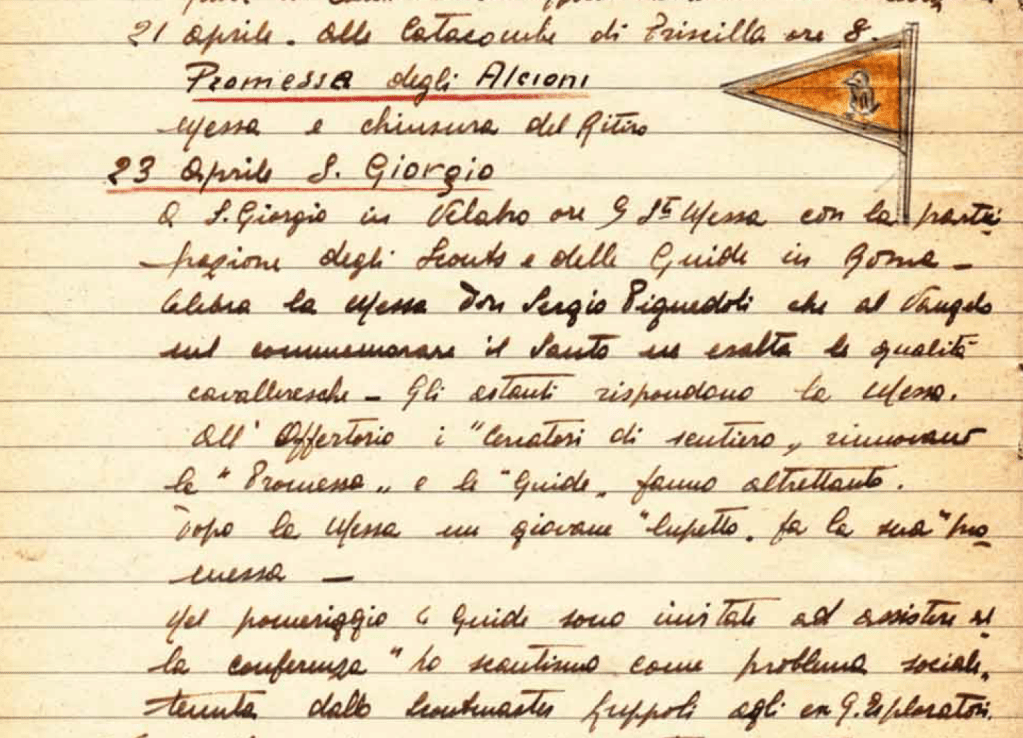 21 aprile - alle Catacombe di Priscilla ore 8.
Promessa degli Alcioni
Messa e chiusura del Ritiro
23 Aprile S. Giorgio
A S. Giorgio in Velabro ore 9 Sta Messa con la parteci
pazione degli Scouts e delle Guide in Roma -
Celebra la Messa Don Sergio Pignedoli che al Vangelo
nel commemorare il Santo ne esalta le qualità
cavalleresche - Gli astanti rispondono la Messa.
All' Offertorio i "Cercatori di sentiero„ rinnovano
la "Promessa„ e le "Guide„ fanno altrettanto.
Dopo la Messa un giovane "lupetto„ fa la sua "pro
messa -
Nel pomeriggio le Guide sono invitate ad assistere al
la conferenza "Lo scautismo come problema sociale„
tenuta dallo Scoutmaster agli ex G. Esploratori.